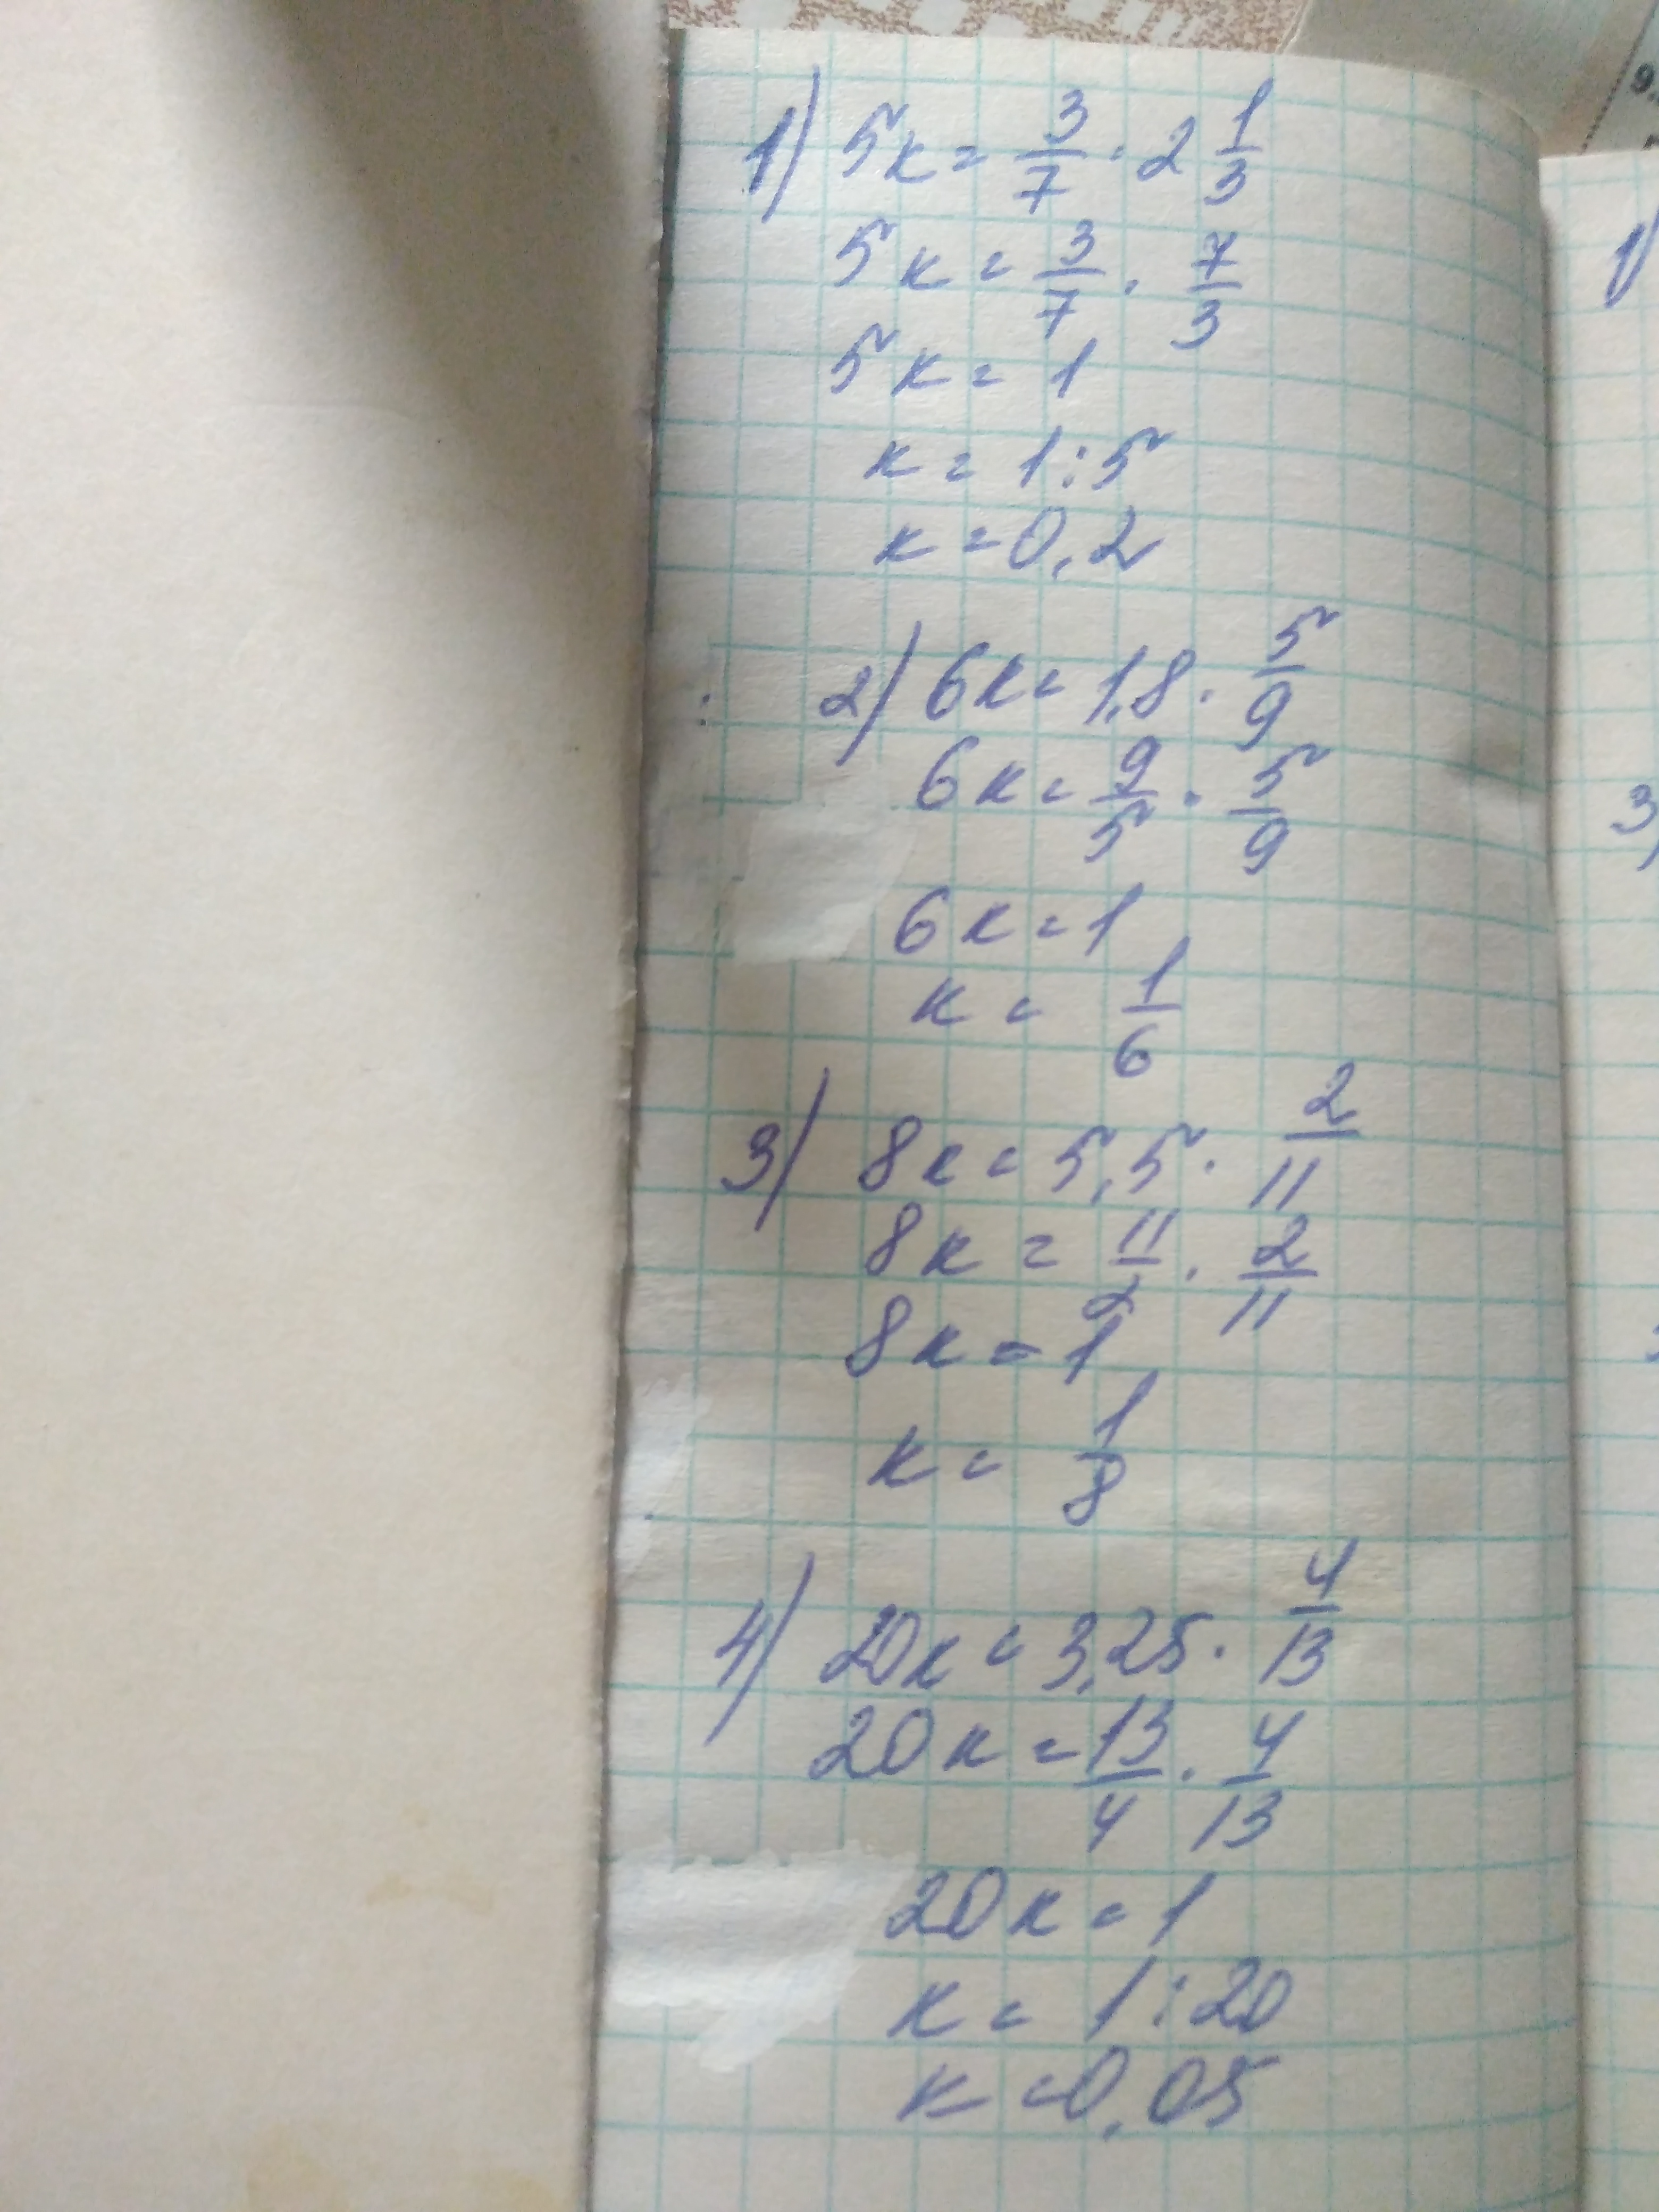 1) 5к = 3/7 · 2 1/3
5к = 3/7 · 7/3
5к = 1
к = 1:5
к = 0,2
2) 6к = 1,8 · 5/9
6к = 9/5 · 5/9
6к = 1
к = 1/6
3) 8к = 5,5 · 2/11
8к = 11/2 · 2/11
8к = 1
к = 1/8
4) 20к = 3,25 · 4/13
20к = 13/4 · 4/13
20к = 1
к = 1:20
к = 0,05
1)
3)
9.